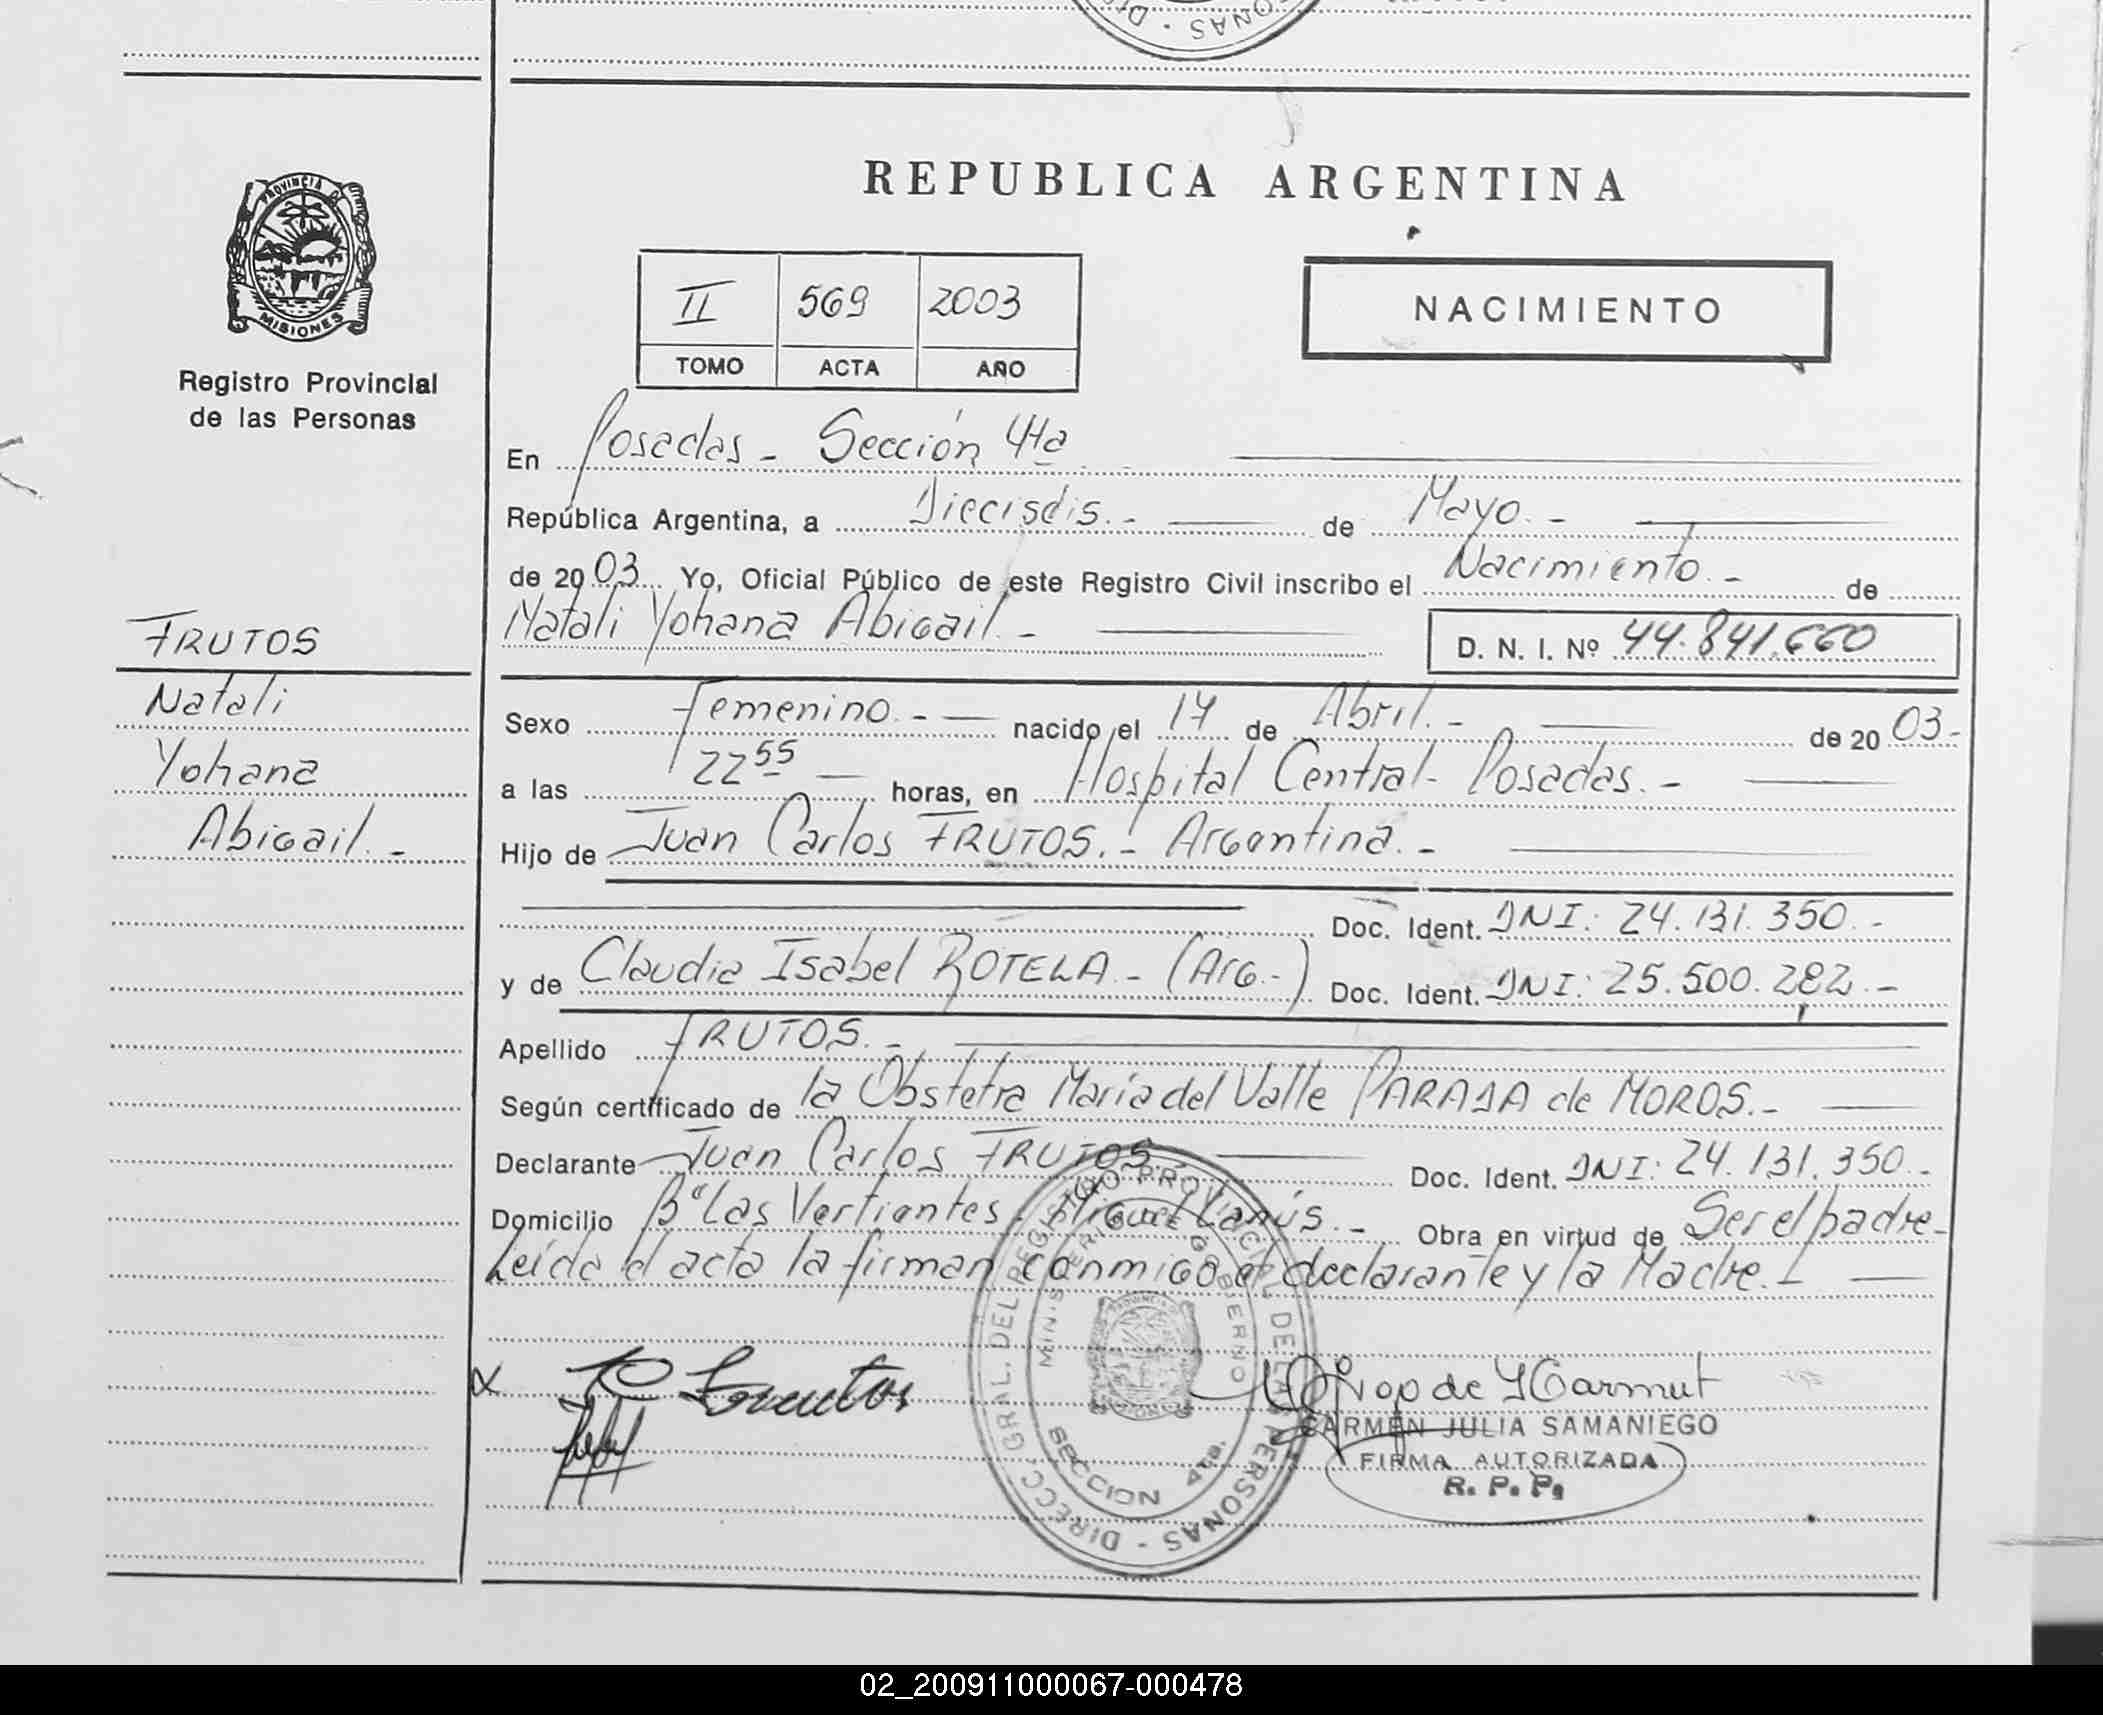 REPUBLICA ARGENTINA
PROVINCIA DE
MISIONES
Registro Provincial
de las Personas
II 569 2003
TOMO ACTA AÑO
NACIMIENTO
En Posadas - Sección 4ta
República Argentina, a Dieciséis.- de Mayo.-
de 2003 Yo, Oficial Público de este Registro Civil inscribo el Nacimiento.- de
Natali Yohana Abigail.- D. N. I. Nº 44.841.660
FRUTOS
Natali
Yohana
Abigail.-
Sexo Femenino.- nacido el 14 de Abril.- de 2003.-
a las 22 55 horas, en Hospital Central - Posadas.-
Hijo de Juan Carlos FRUTOS.- Argentina.-
Doc. Ident. DNI: 24.131.350.-
y de Claudia Isabel ROTELA.- (Arg.-) Doc. Ident. DNI: 25.500.282.-
Apellido FRUTOS.-
Según certificado de la Obstetra María del Valle PARADA de MOROS.-
Declarante Juan Carlos FRUTOS Doc. Ident. DNI: 24.131.350.-
Domicilio Bº Las Vertientes - Miguel Lanús.- Obra en virtud de Ser el padre-
Leída el acta la firman conmigo el declarante y la Madre.-
DIRECC. GRAL. DEL REGISTRO PROVINCIAL DE LAS PERSONAS -
MINISTERIO DE GOBIERNO
SECCION 4ta.
CARMEN JULIA SAMANIEGO
FIRMA AUTORIZADA
R. P. P.
02_200911000067-000478